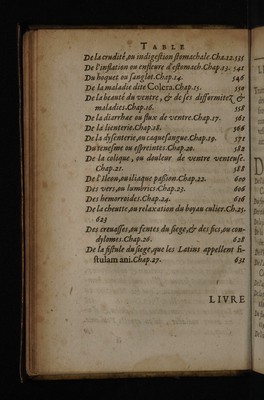 TABLE
De la crudité, ou indigestion stomachale. Cha.12. 535
De l'inflation ou enfleure d'estomach. Chap.13. 541
Du hoquet ou sanglot. Chap.14. 546
De la maladie dite Colera. Chap.15. 550
De la beauté du ventre, & de ses difformitez &
maladies. Chap.16. 558
De la diarrhae ou flux de ventre. Chap.17. 561
De la lienterie. Chap.18. 566
De la dysenterie, ou caquesangue. Chap.19. 571
Du tenesme ou espreintes. Chap.20. 582
De la colique, ou douleur de ventre venteuse.
Chap.21. 588
De l'Ileon, ou iliaque passion. Chap.22. 600
Des vers, ou lumbrics. Chap.23. 606
Des hemorroides. Chap.24. 616
De la cheutte, ou relaxation du boyau culier. Ch.25.
623
Des creuasses, ou fentes du siege, & des fics, ou con-
dylomes. Chap.26. 628
De la fistule du siege, que les Latins appellent fi-
stulam ani. Chap.27. 631
LIVRE